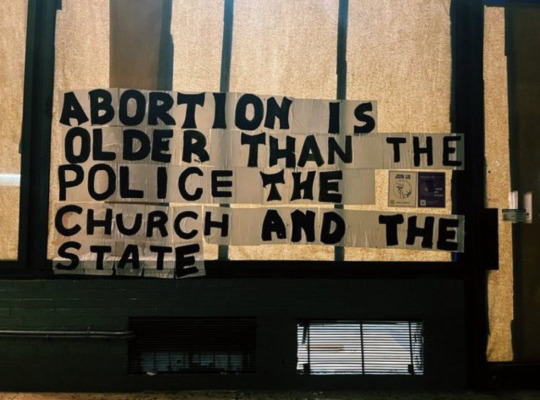 ABORTION IS
OLDER THAN THE
POLICE THE
CHURCH AND THE
STATE
JOIN US